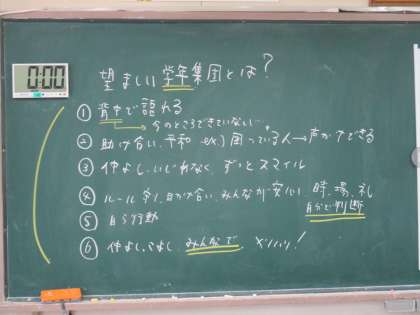 0:00
望ましい学年集団とは?
① 背中で語れる
→ 今のところできていない…
② 助け合い、平和 ex.) 困っている人→声かけできる
③ 仲よし、いじめなく、ずっとスマイル
④ ルール守り、助け合い、みんなが安心、時、場、礼
自分で判断
⑤ 自ら行動
⑥ 仲よし、みんなで